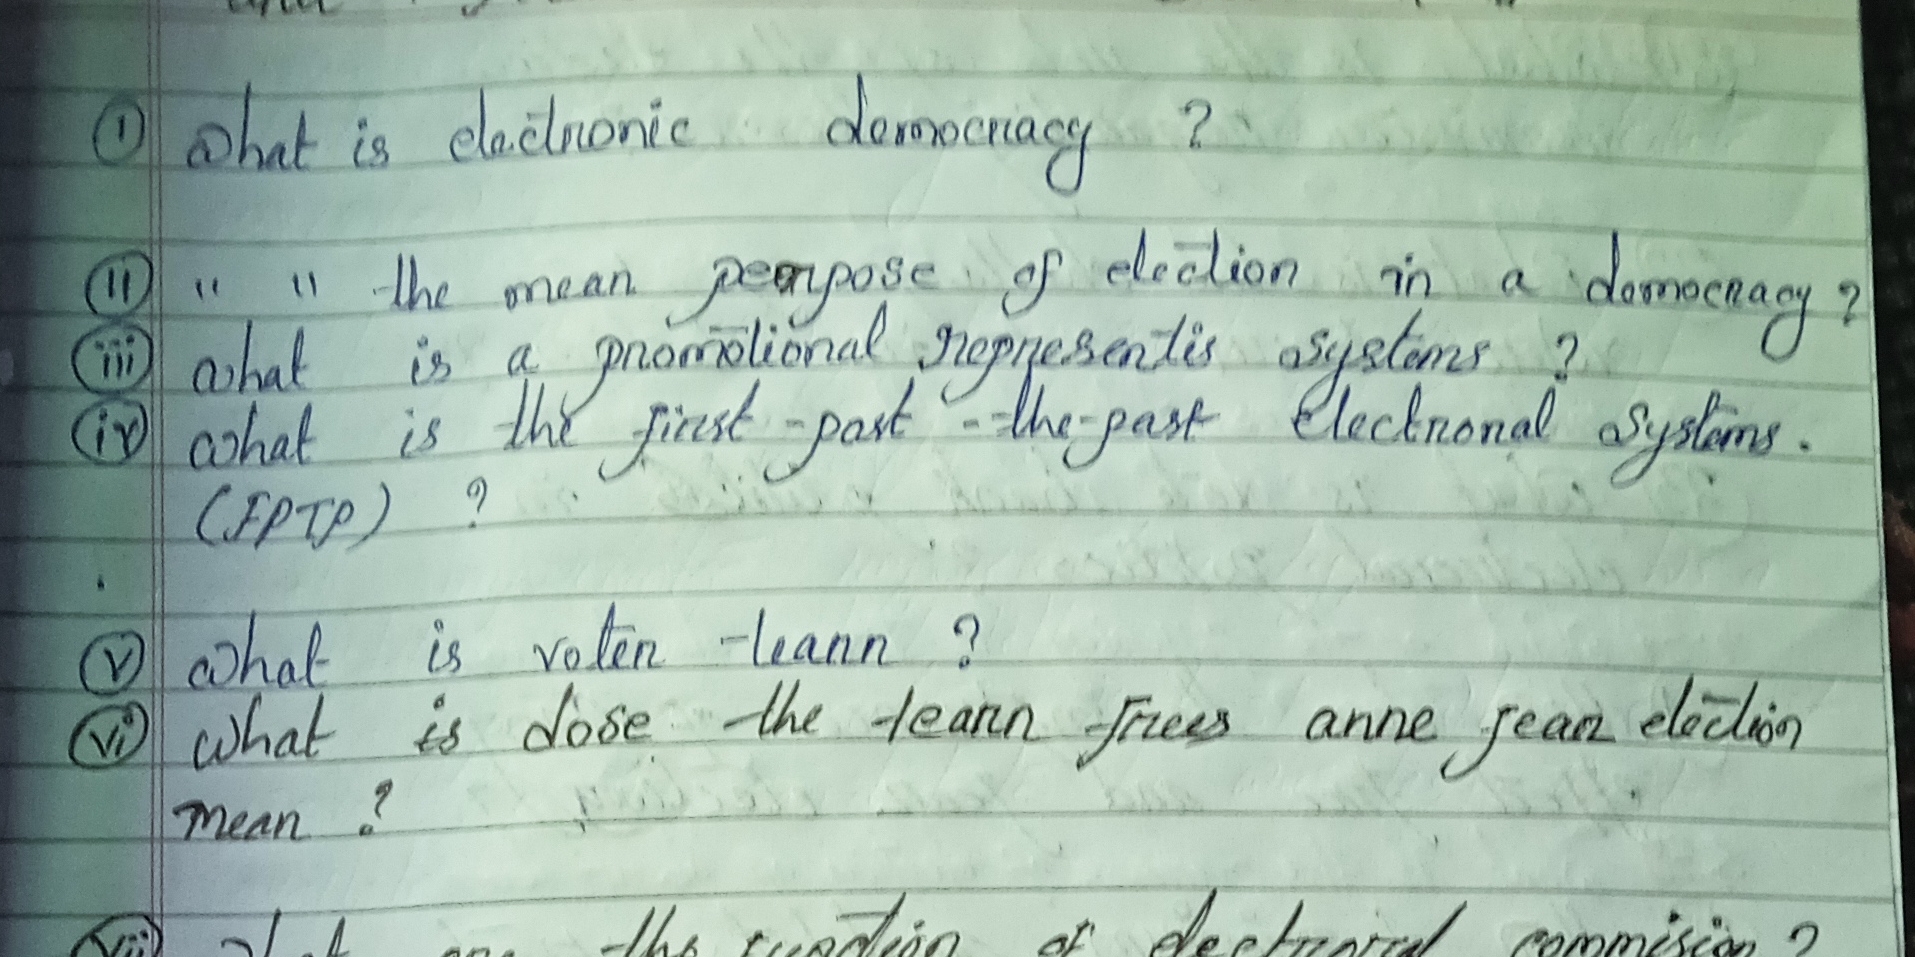 ① What is electronic democracy ?
⑪ " " the mean perpose of election in a democracy ?
ⅲ What is a promotional representis systems ?
ⅳ What is the first-past-the-past Electronal Systems.
(FPTP) ?
ⅴ What is voter -learn ?
ⅵ What is dose the tearn frees anne fear election
mean ?
the function of electronal commision ?